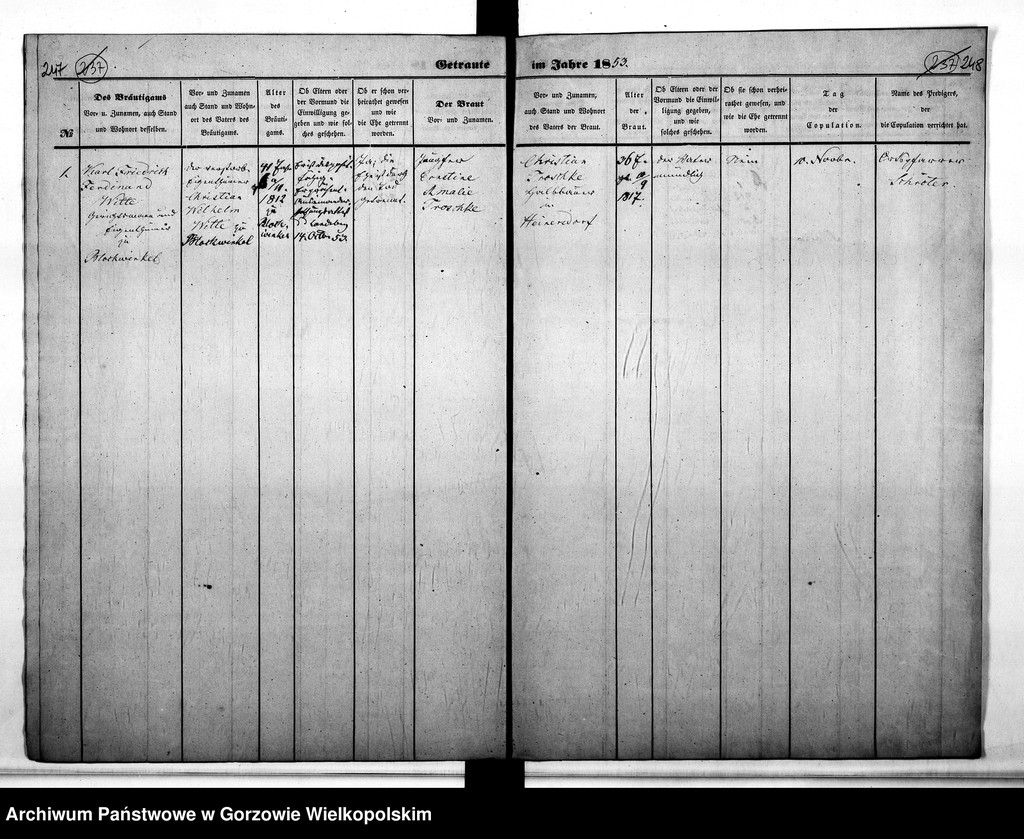 247 237
Getraute im Jahre 1853.
237 248
№
Des Bräutigams
Vor- u. Zunamen, auch Stand
und Wohnort desselben.
Vor- und Zunamen
auch Stand und Wohn-
ort des Vaters des
Bräutigams.
Alter
des
Bräuti-
gams.
Ob Eltern oder
der Vormund die
Einwilligung ge-
geben und wie sol-
ches geschehen.
Ob er schon ver-
heirathet gewesen
und wie
die Ehe getrennt
worden.
Der Braut
Vor- und Zunamen.
Vor- und Zunamen,
auch Stand und Wohnort
des Vaters der Braut.
Alter
der
Braut.
Ob Eltern oder der
Vormund die Einwil-
ligung gegeben,
und wie
solches geschehen.
Ob sie schon verhei-
rathet gewesen, und
wie die Ehe getrennt
worden.
Tag
der
Copulation.
Name des Predigers,
der
die Copulation verrichtet hat.
1.
Karl Friedrich
Ferdinand
Witte
und
Eigenthümer
zu
Blockwinkel
der verstorb.
Eigenthümer
Christian
Wilhelm
Witte zu
Blockwinkel
41 J.
1812
zu
Block-
winkel
Landsberg
14. Octo. 53.
Ja; die
durch
den Tod
getrennt.
Jungfer
Ernstine
Amalie
Troschke
Christian
Troschke
Halbbauer
in
Heinersdorf
36 J.
9
1817.
der Vater
mündlich
Nein
Novbr.
Ortspfarrer
Schröter
Archiwum Państwowe w Gorzowie Wielkopolskim